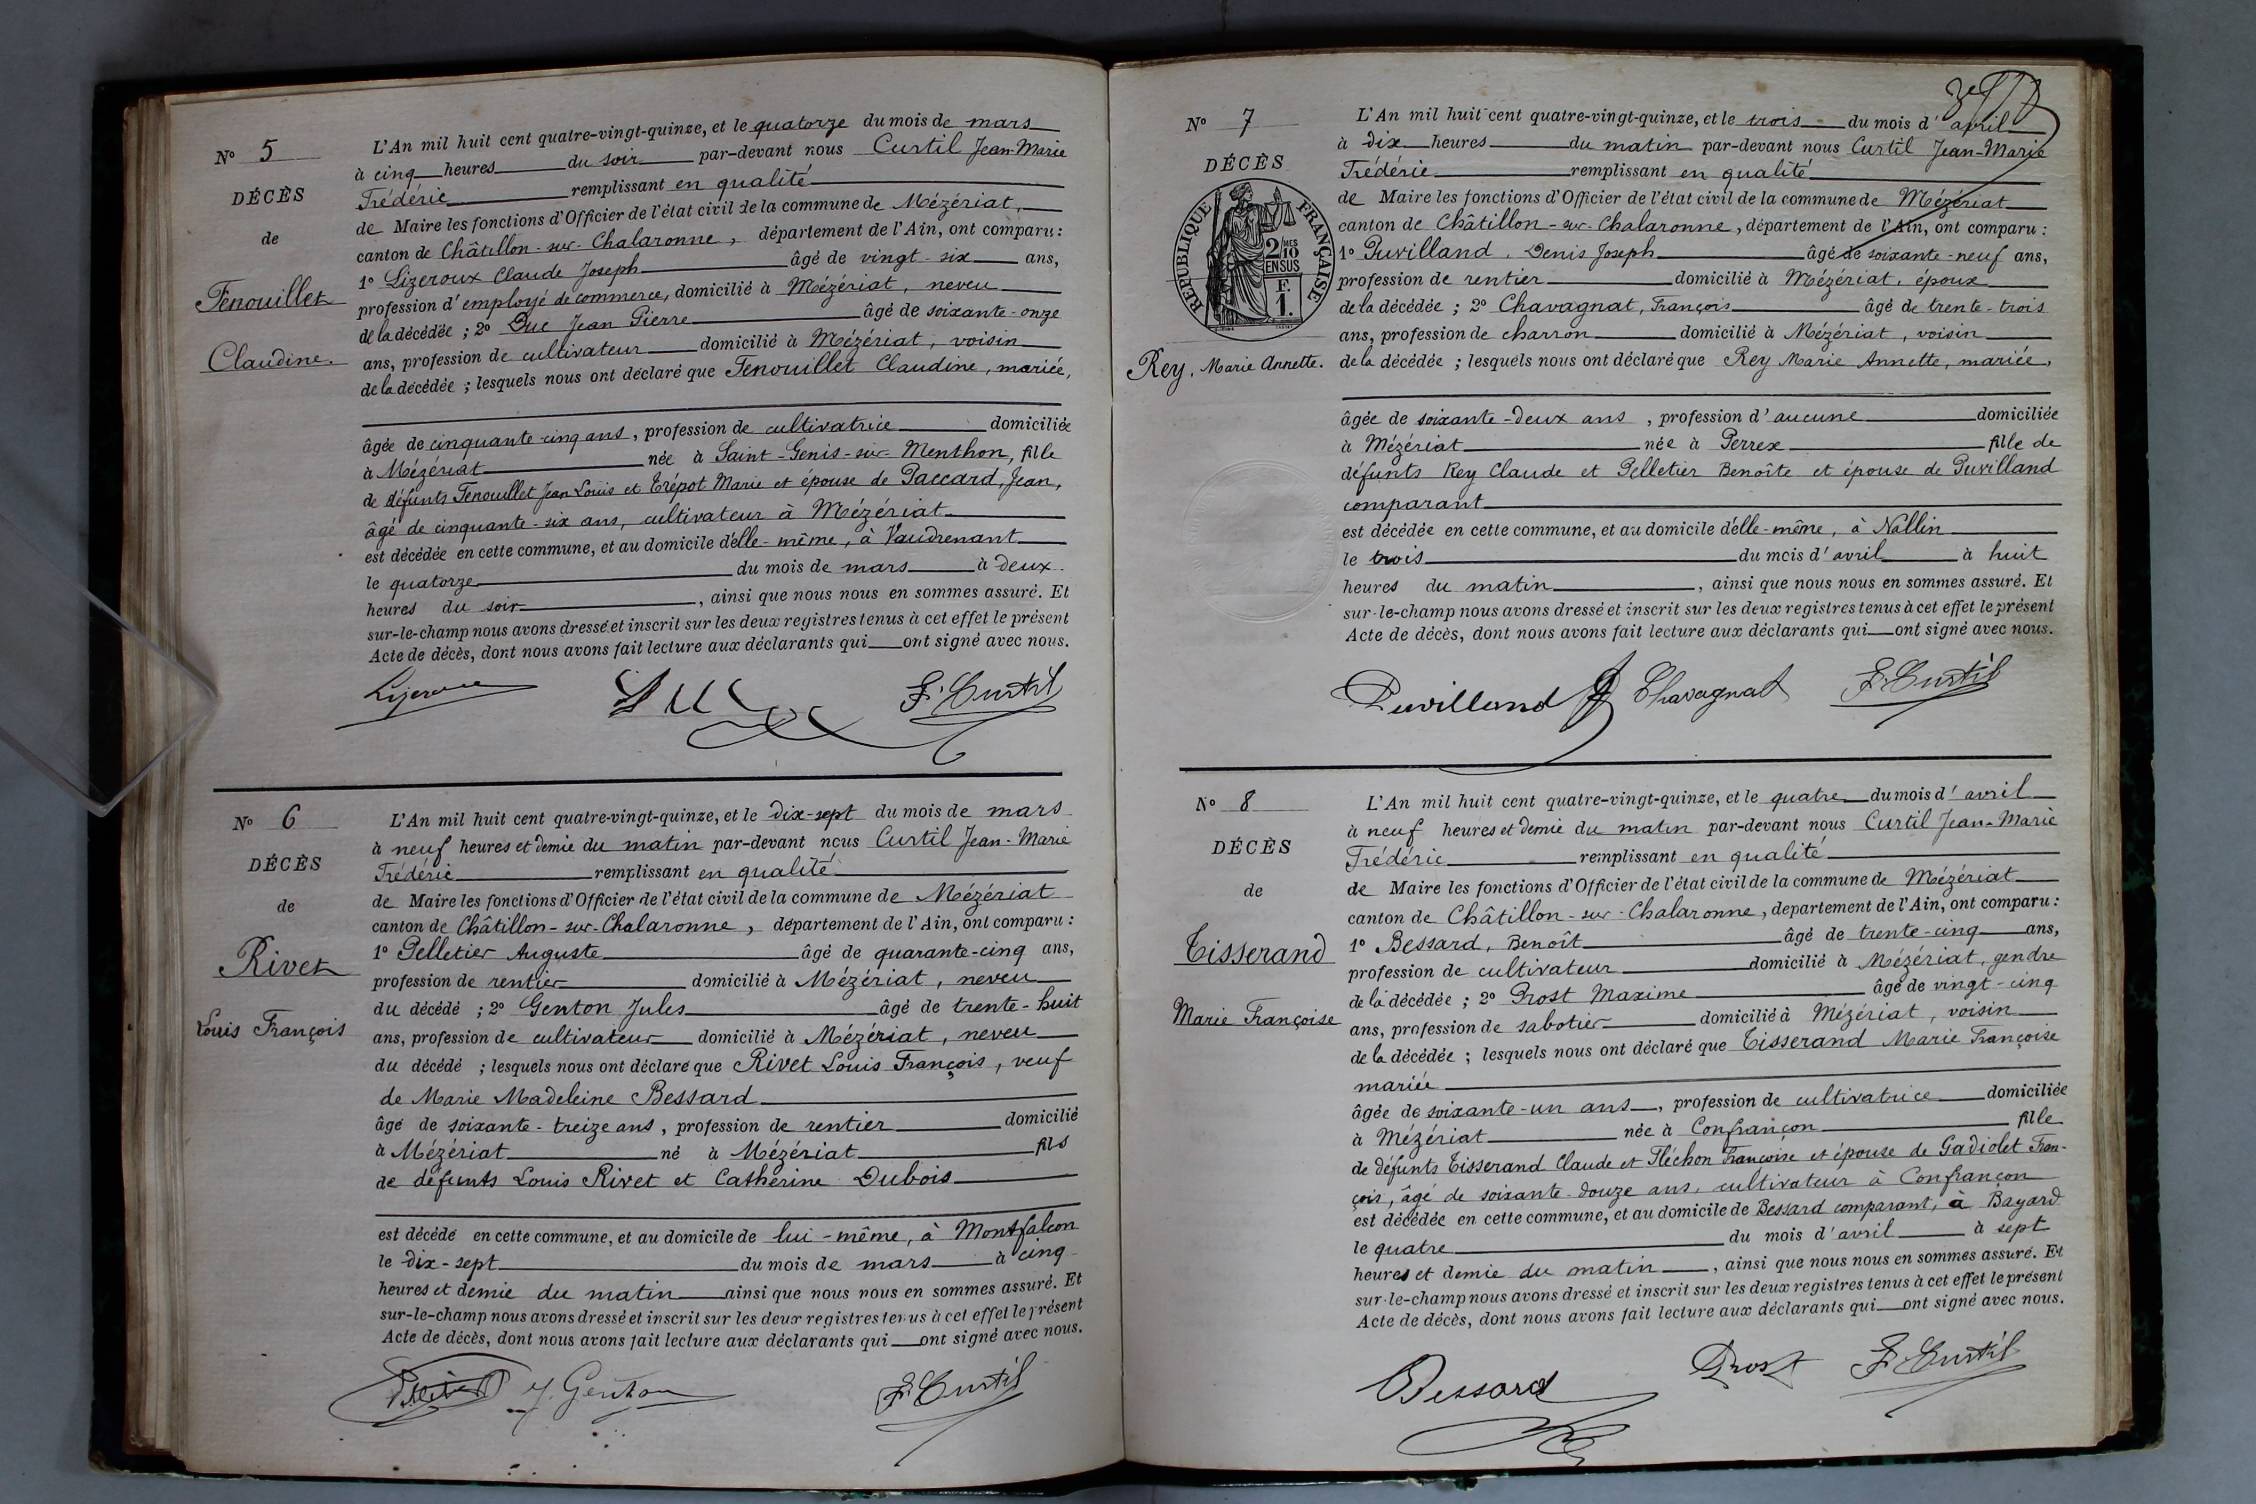 N° 5
DÉCÈS
de
Fenouillet
Claudine.
L'An mil huit cent quatre-vingt-quinze, et le quatorze du mois de mars
à cinq heures du soir par-devant nous Curtil Jean-Marie
Frédéric remplissant en qualité
de Maire les fonctions d'Officier de l'état civil de la commune de Mézériat,
canton de Châtillon-sur-Chalaronne, département de l'Ain, ont comparu :
1° Lizeroux Claude Joseph âgé de vingt-six ans,
profession d'employé de commerce, domicilié à Mézériat, neveu
de la décédée ; 2° Duc Jean Pierre âgé de soixante-onze
ans, profession de cultivateur domicilié à Mézériat, voisin
de la décédée ; lesquels nous ont déclaré que Fenouillet Claudine, mariée,
âgée de cinquante-cinq ans, profession de cultivatrice domiciliée
à Mézériat née à Saint-Genis-sur-Menthon, fille
de défunts Fenouillet Jean Louis et Trépot Marie et épouse de Paccard, Jean,
âgé de cinquante-six ans, cultivateur à Mézériat
est décédée en cette commune, et au domicile d'elle-même, à Vaudrenant
le quatorze du mois de mars à deux
heures du soir, ainsi que nous nous en sommes assuré. Et
sur-le-champ nous avons dressé et inscrit sur les deux registres tenus à cet effet le présent
Acte de décès, dont nous avons fait lecture aux déclarants qui ont signé avec nous.
Duc F. Curtil
N° 6
DÉCÈS
de
Rivet
Louis François
L'An mil huit cent quatre-vingt-quinze, et le dix-sept du mois de mars
à neuf heures et demie du matin par-devant nous Curtil Jean-Marie
Frédéric remplissant en qualité
de Maire les fonctions d'Officier de l'état civil de la commune de Mézériat
canton de Châtillon-sur-Chalaronne, département de l'Ain, ont comparu :
1° Pelletier Auguste âgé de quarante-cinq ans,
profession de rentier domicilié à Mézériat, neveu
du décédé ; 2° Genton Jules âgé de trente-huit
ans, profession de cultivateur domicilié à Mézériat, neveu
du décédé ; lesquels nous ont déclaré que Rivet Louis François, veuf
de Marie Madeleine Bessard
âgé de soixante-treize ans, profession de rentier domicilié
à Mézériat né à Mézériat fils
de défunts Louis Rivet et Catherine Dubois
est décédé en cette commune, et au domicile de lui-même, à Montfalcon
le dix-sept du mois de mars à cinq
heures et demie du matin ainsi que nous nous en sommes assuré. Et
sur-le-champ nous avons dressé et inscrit sur les deux registres tenus à cet effet le présent
Acte de décès, dont nous avons fait lecture aux déclarants qui ont signé avec nous.
J. Genton F. Curtil
N° 7
DÉCÈS
RÉPUBLIQUE FRANÇAISE
2 MES 10 EN SUS
F. 1.
Rey, Marie Annette.
L'An mil huit cent quatre-vingt-quinze, et le trois du mois d'avril
à dix heures du matin par-devant nous Curtil Jean-Marie
Frédéric remplissant en qualité
de Maire les fonctions d'Officier de l'état civil de la commune de Mézériat
canton de Châtillon-sur-Chalaronne, département de l'Ain, ont comparu :
1° Puvilland, Denis Joseph âgé de soixante-neuf ans,
profession de rentier domicilié à Mézériat, époux
de la décédée ; 2° Chavagnat, François âgé de trente-trois
ans, profession de charron domicilié à Mézériat, voisin
de la décédée ; lesquels nous ont déclaré que Rey Marie Annette, mariée,
âgée de soixante-deux ans, profession d'aucune domiciliée
à Mézériat née à Perrex fille de
défunts Rey Claude et Pelletier Benoîte et épouse de Puvilland
comparant
est décédée en cette commune, et au domicile d'elle-même, à Nallin
le trois du mois d'avril à huit
heures du matin, ainsi que nous nous en sommes assuré. Et
sur-le-champ nous avons dressé et inscrit sur les deux registres tenus à cet effet le présent
Acte de décès, dont nous avons fait lecture aux déclarants qui ont signé avec nous.
Puvilland Chavagnat F. Curtil
N° 8
DÉCÈS
de
Tisserand
Marie Françoise
L'An mil huit cent quatre-vingt-quinze, et le quatre du mois d'avril
à neuf heures et demie du matin par-devant nous Curtil Jean-Marie
Frédéric remplissant en qualité
de Maire les fonctions d'Officier de l'état civil de la commune de Mézériat
canton de Châtillon-sur-Chalaronne, département de l'Ain, ont comparu :
1° Bessard, Benoît âgé de trente-cinq ans,
profession de cultivateur domicilié à Mézériat, gendre
de la décédée ; 2° Prost Maxime âgé de vingt-cinq
ans, profession de sabotier domicilié à Mézériat, voisin
de la décédée ; lesquels nous ont déclaré que Tisserand Marie Françoise
mariée
âgée de soixante-un ans, profession de cultivatrice domiciliée
à Mézériat née à Confrançon fille
de défunts Tisserand Claude et Fléchon Françoise et épouse de Gadiolet Fran-
çois, âgé de soixante-douze ans, cultivateur à Confrançon
est décédée en cette commune, et au domicile de Bessard comparant, à Bayard
le quatre du mois d'avril à sept
heures et demie du matin, ainsi que nous nous en sommes assuré. Et
sur-le-champ nous avons dressé et inscrit sur les deux registres tenus à cet effet le présent
Acte de décès, dont nous avons fait lecture aux déclarants qui ont signé avec nous.
Bessard Prost F. Curtil